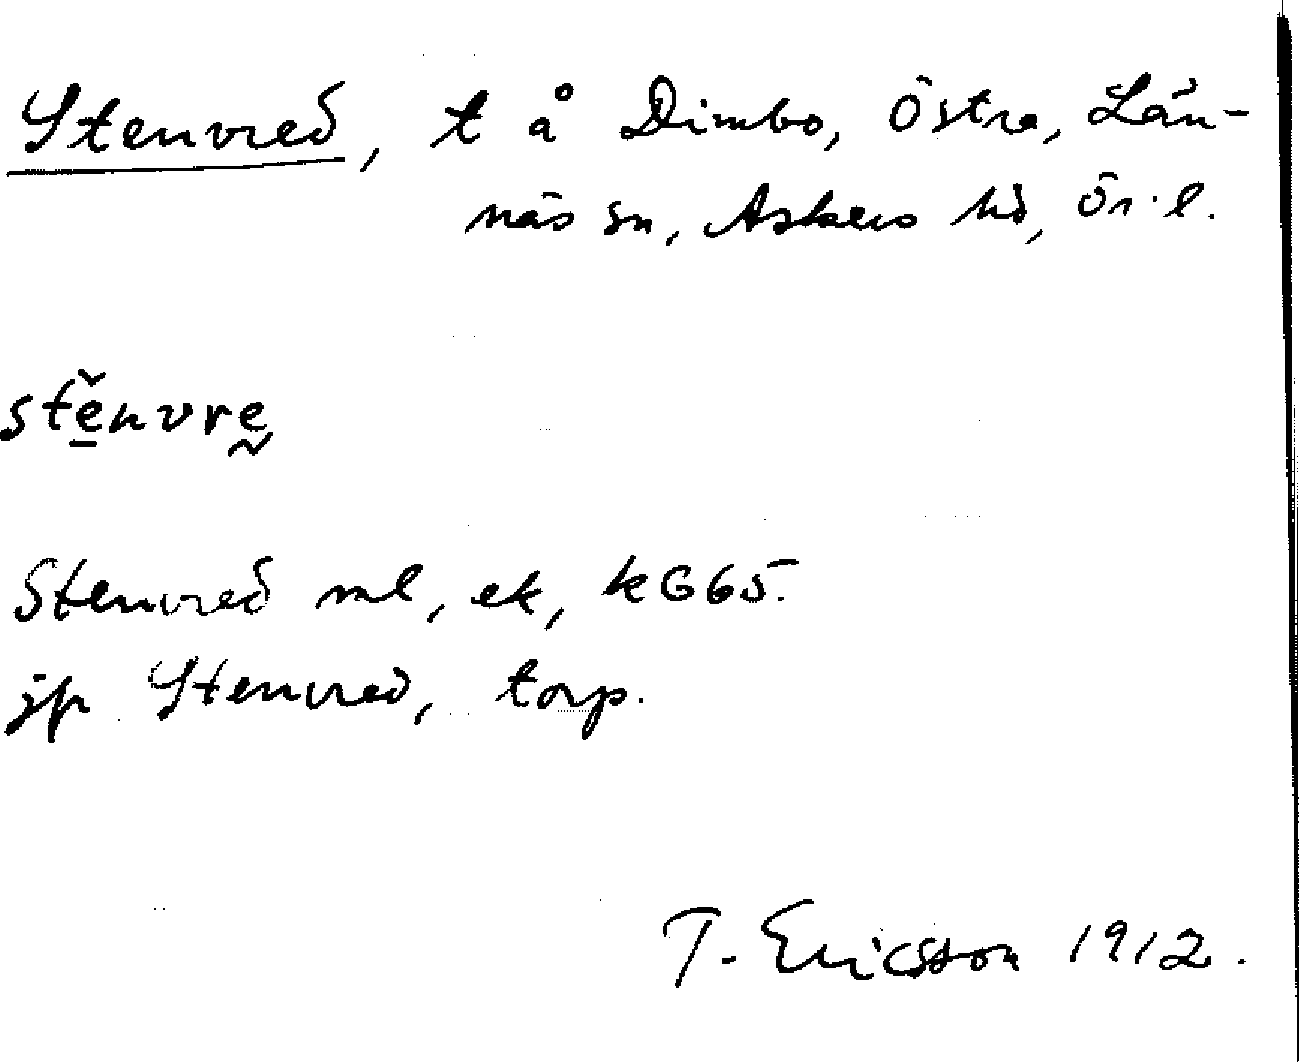 Stenvred, t å Dimbo, Östra, Län-
näs sn, Askers hd, Ör.l.
stěnvrḛ
Stenvred ml, ek, k G65.
jfr Stenvred, torp.
T. Ericsson 1912.